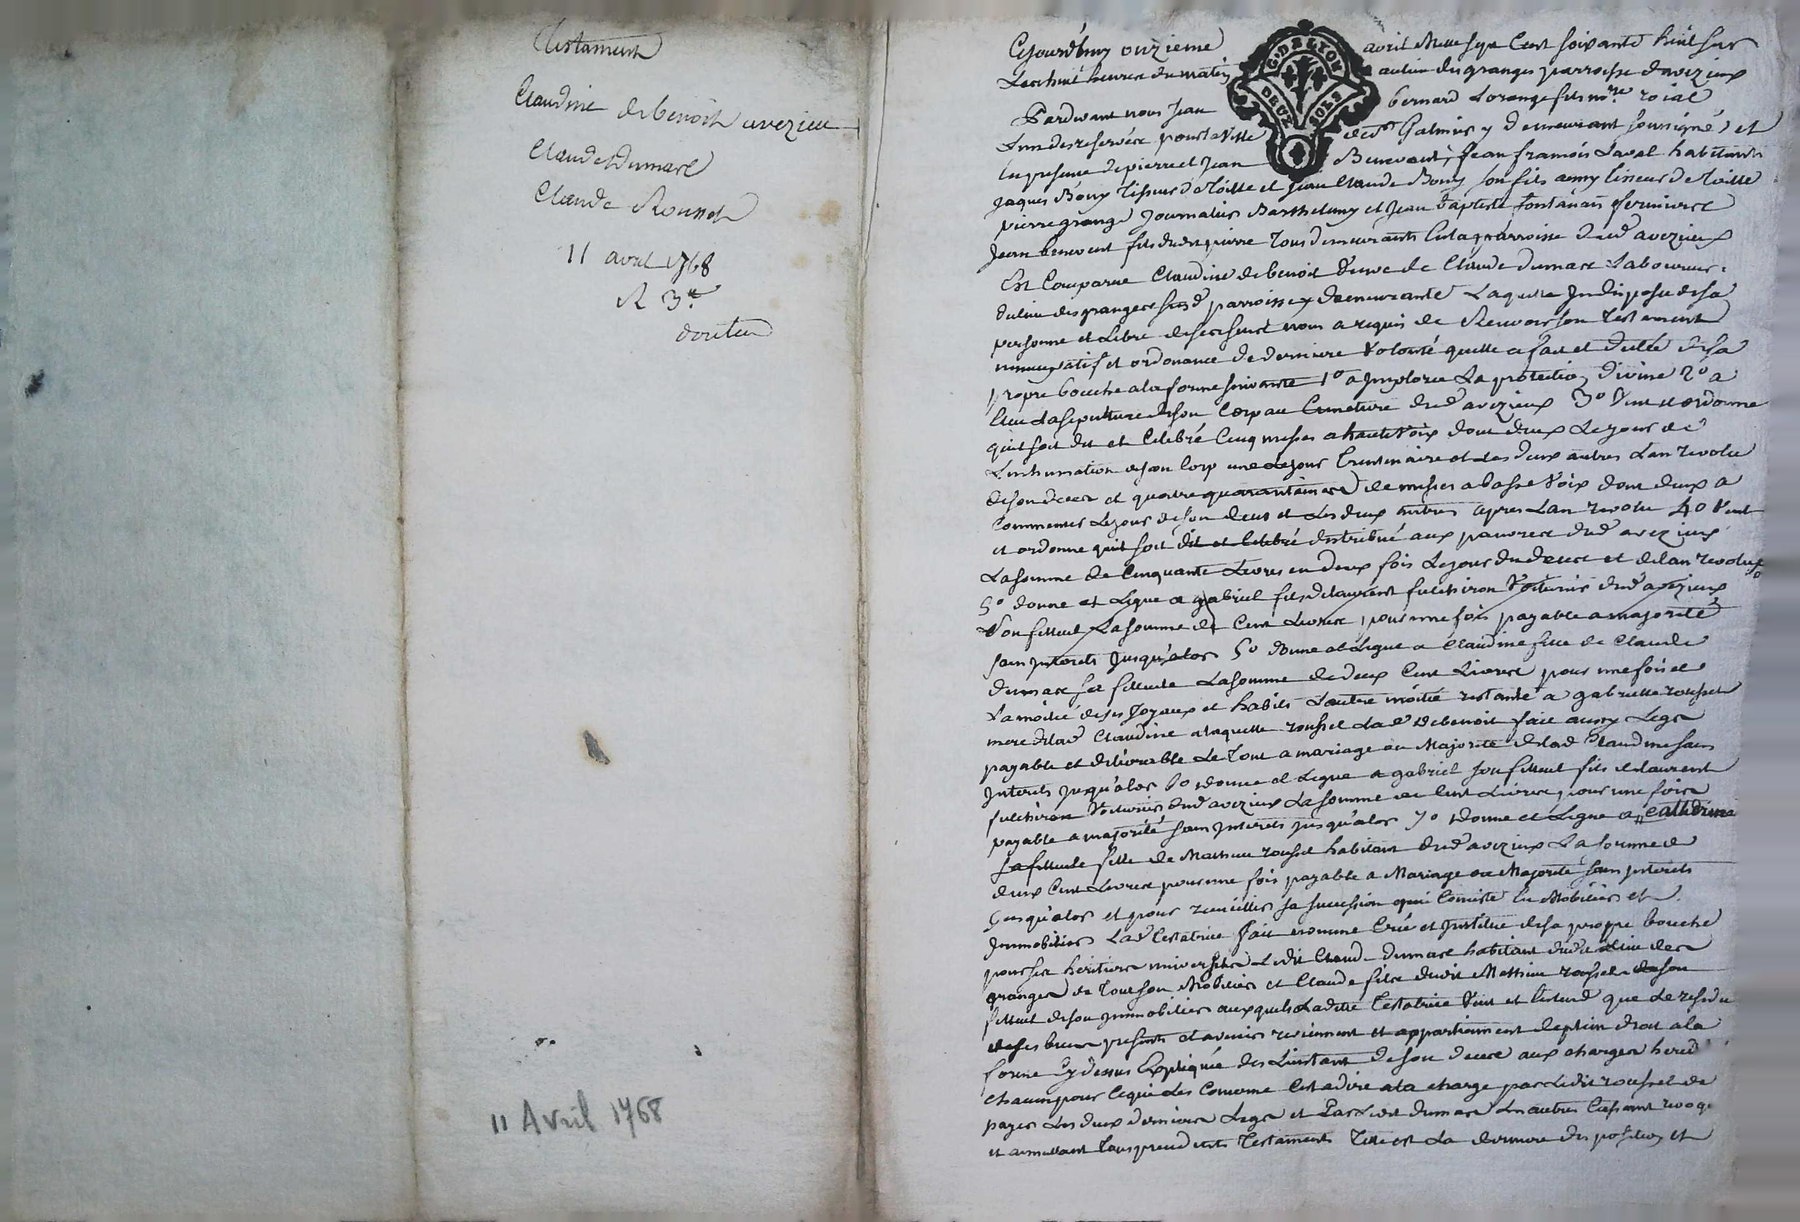 Testament
Claudine debenoit avezieu
Claude Dumare
Claude Roussel
11 avril 1768
R 3#
douteu
11 Avril 1768
G. DE LYON
DEUX SOLS
Cejourdhuy onzieme avril mil sept Cent soixante huit sur
Les huit heures du matin au lieu des granges parroisse davezieux
Pardevant nous Jean bernard Lorange fils nore roial
Lun des reservés pour la Ville de St Galmier y demeurant soussigné et
En presence de pierre et Jean Benevent, Jean francois Laval habitants
Jaques Bouy Tisseur de Toille et Jean Claude Bouy son fils aussy tisseur de Toille
pierre grange Journalier Barthelemy et Jean baptiste fontanais fermiers et
Jean benevent fils dudit pierre Tous demeurants en la parroisse dud avezieux
Est Comparue Claudine debenoit Veuve de Claude dumare Laboureur
du lieu des granges susd parroisse y demeurante Laquelle Indisposée de sa
personne et Libre de ses sens nous a requis de Recevoir son Testament
nuncupatif et ordonance de derniere Volonté quelle a fait et dicté de sa
propre bouche a la forme suivante 1o a Imploré La protection divine 2o a
Elu La sepulture de son Corp au Cimetiere dud avezieux 3o Veut et ordonne
quil soit dit et Celebré Cinq messes a haute Voix dont deux Le jour de
Linhumation de son Corp une Le jour Trentenaire et Les deux autres Lan revolu
de son deces et quatre quarantaines de messes a basse Voix dont deux a
Commencer Le jour de son deces et Les deux autres apres Lan revolu 4o Veut
et ordonne quil soit dit et Celebré distribué aux pauvres dud avezieux
La somme de Cinquante Livres en deux fois Le jour du deces et de lan revolu
5o donne et Legue a gabriel fils de laurent fulchiron Voiturier dud avezieux
son filleul La somme de Cent Livres pour une fois payable a majorité
sans Interets Jusqu'alors 5o donne et Legue a Claudine fille de Claude
dumare sa filleule La somme de deux Cent Livres pour une fois et
La moitié de ses Joyaux et habits Lautre moitié restante a gabrielle roussel
mere de lad Claudine a laquelle roussel Lad debenoit fait aussy Legs
payable et delivrable Le Tout a mariage ou Majorité de lad Claudine sans
Interets Jusqu'alors 6o donne et Legue a gabriel son filleul fils de laurent
fulchiron Voiturier dud avezieux La somme de Cent Livres pour une fois
payable a majorité sans Interets Jusqu'alors 7o donne et Legue a Catherine
sa filleule fille de Mathieu roussel habitant dud avezieux La somme de
deux Cent Livres pour une fois payable a Mariage ou Majorité sans Interets
Jusqu'alors et pour recueillir sa succession qui Consiste En Mobilier et
Immobilier Lad Testatrice fait nomme Crée et Institue de sa propre bouche
pour ses heritiers universels Ledit Claude dumare habitant dudit lieu des
granges de Tout son Mobilier et Claude fils dudit Mathieu roussel
filleul de son Immobilier auxquels Ladite Testatrice Veut et Entend que Le residu
de ses biens presents et avenir reviennent et appartiennent de plein droit a la
forme Cy dessus Expliquée des Linstant de son deces aux charges hered
chacun pour Ce qui Les Concerne Cest a dire a la charge par Ledit roussel de
payer Les deux derniers Legs et Par Ledit dumare Les autres Cassant revoq
et annullant Tous precedents Testaments Telle est La derniere disposition et